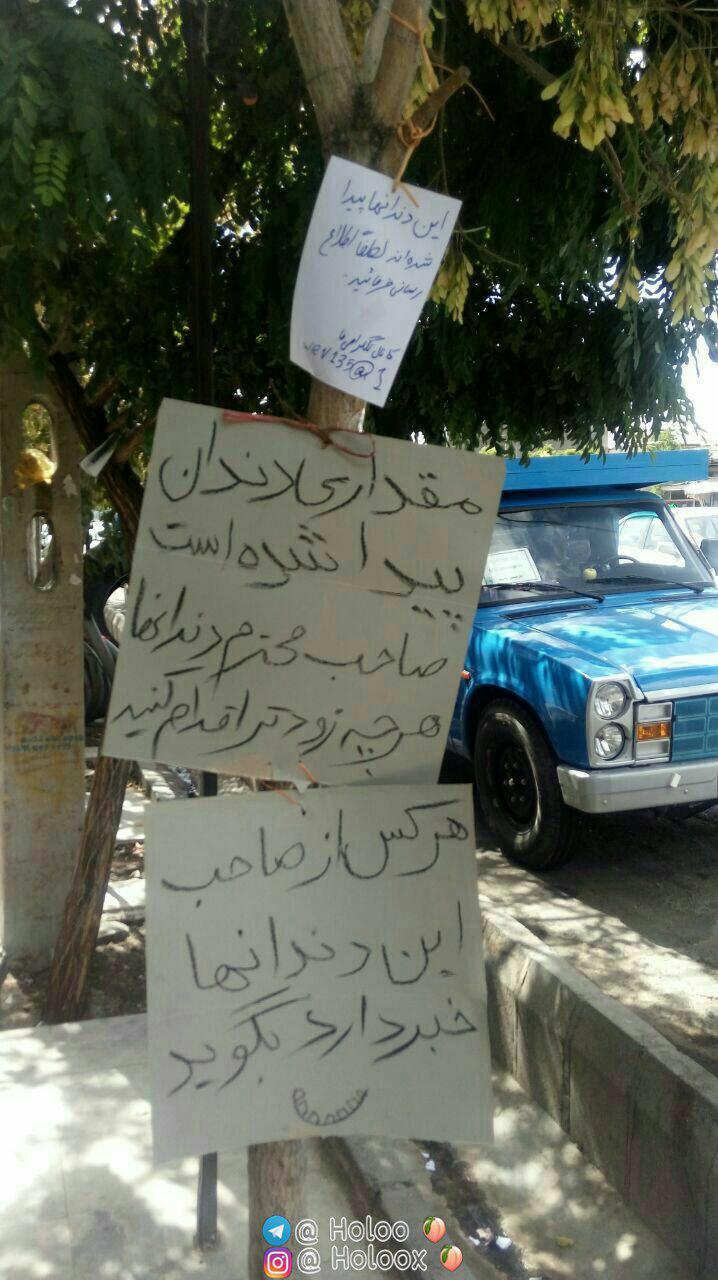 این دندانها پیدا
شده اند لطفاً اطلاع
رسانی فرمائید.
کانال تلگرامی ما
مقداری دندان
پیدا شده است
صاحب محترم دندانها
هرچه زودتر اقدام کنید
هرکس از صاحب
این دندانها
خبر دارد بگوید
@ Holoo
@ Holoox